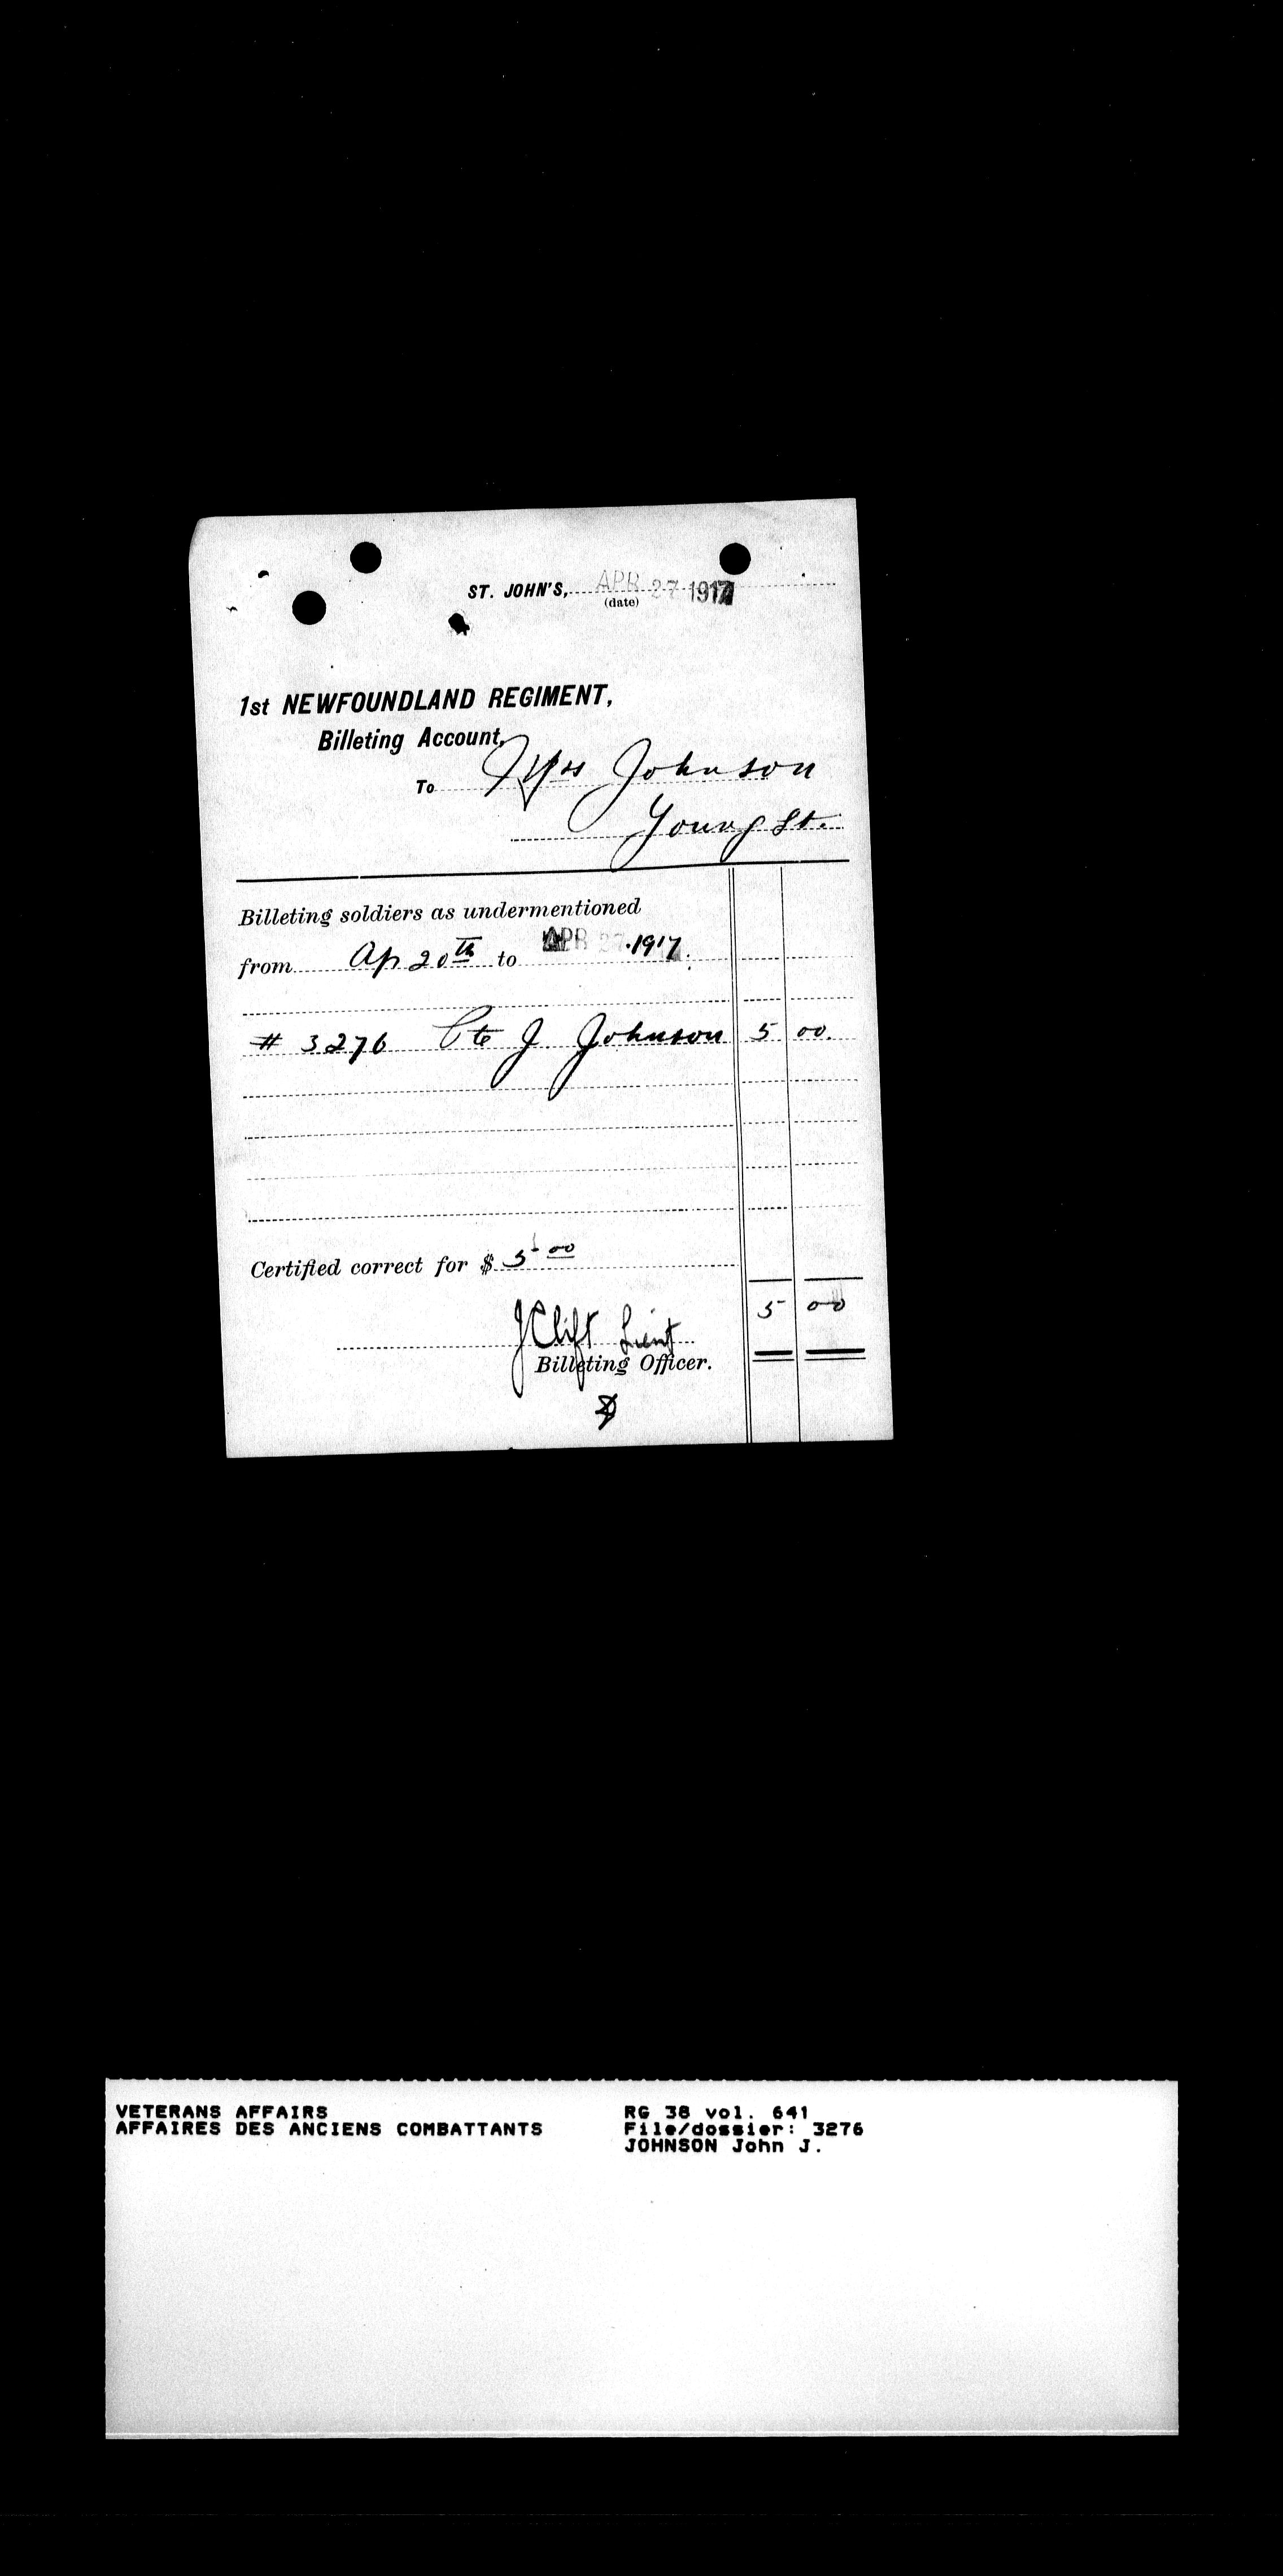 ST. JOHN'S, APR 27 1917
(date)
1st NEWFOUNDLAND REGIMENT,
Billeting Account,
To Mrs Johnson
Young St.
Billeting soldiers as undermentioned
from Ap 20th to APR 27 1917.
# 3276 Pte J. Johnson 5 00.
Certified correct for $ 5 00
5 00
J Clift Lieut
Billeting Officer.
VETERANS AFFAIRS RG 38 vol. 641
AFFAIRES DES ANCIENS COMBATTANTS File/dossier: 3276
JOHNSON John J.